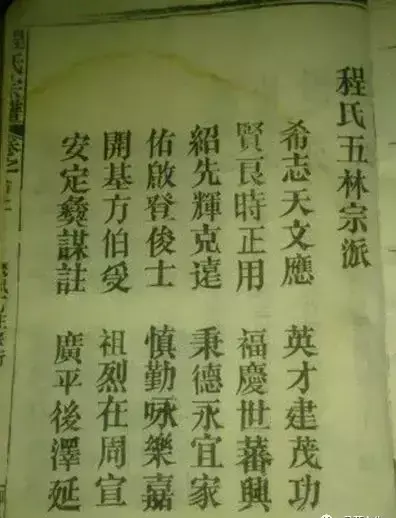 程氏五林宗派
希志天文應　英才建茂功
賢良時正用　福慶世蕃興
紹先輝克遠　秉德永宜家
佑啟登俊士　慎勤咏樂嘉
開基方伯受　祖烈在周宣
安定發謀註　廣平後澤延
氏宗譜 卷之